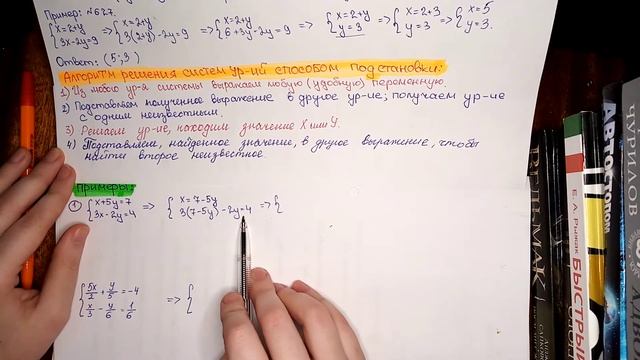 Пример: №637.
{x=2+y => {x=2+y => {x=2+y => {x=2+y => {x=2+3 => {x=5
{3x-2y=9 {3(2+y)-2y=9 {6+3y-2y=9 {y=3. {y=3 {y=3.
Ответ: (5;3)
Алгоритм решения систем ур-ий способом подстановки:
1) Из любого ур-я системы выражаем любую (удобную) переменную.
2) Подставляем полученное выражение в другое ур-ие; получаем ур-ие
с одним неизвестным.
3) Решаем ур-ие, находим значение X или У.
4) Поставляем, найденное значение, в другое выражение, чтобы
найти второе неизвестное.
Примеры:
① {x+5y=7 => {x=7-5y => {
{3x-2y=4 {3(7-5y)-2y=4
{5x/2 + y/5 = -4 => {
{x/3 - y/6 = 1/6
ВЕДЬМАК
Е. А. РЫЖАК
БЫСТРЫЙ
АВТОСТОПОМ
ЧУРИЛОВ